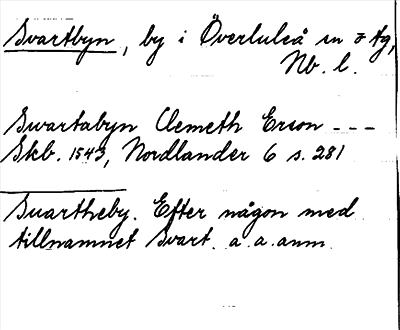 Svartbyn, by i Överluleå sn o tg,
Nb. l.
Swartabyn Clemeth Erson ---
Skb. 1543, Nordlander 6 s. 281
Suartheby. Efter någon med
tillnamnet Svart. a. a. anm.